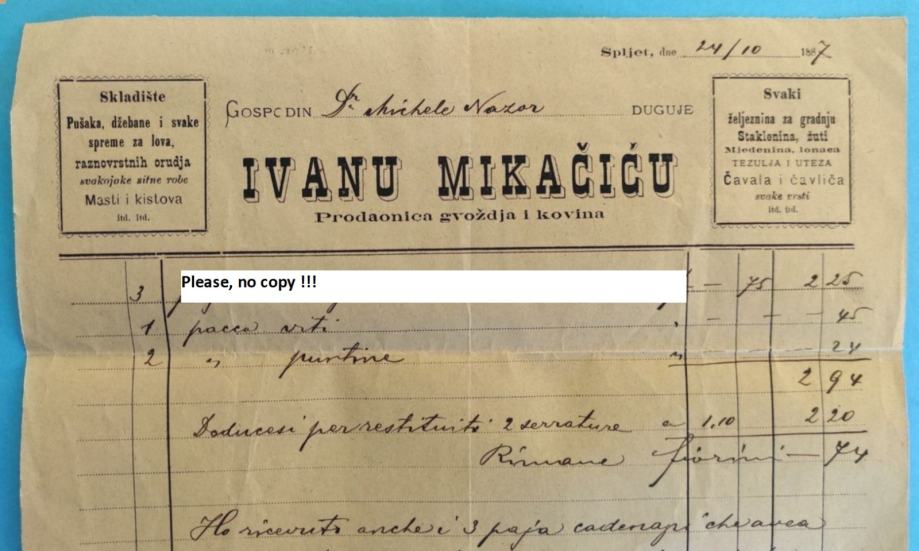 Spljet, dne 24/10 1887
Skladište
Pušaka, džebane i svake
spreme za lova,
raznovrstnih orudja
svakojake sitne robe
Masti i kistova
itd. itd.
GOSPODIN Dr Michele Nazor DUGUJE
IVANU MIKAČIĆU
Prodaonica gvoždja i kovina
Svaki
željeznina za gradnju
Staklenina, žuti
Mjedenina, lonaca
TEZULJA I UTEZA
Čavala i čavliča
svake vrsti
itd. itd.
3 — 75 2 25
Please, no copy !!!
1 pacco vrti " — — 45
2 " puntine " 24
2 94
Doducesi per restituiti 2 serrature a 1.10 2 20
Rimane fiorini — 74
Ho ricevuto anche i 3 paja cadenazi che avea